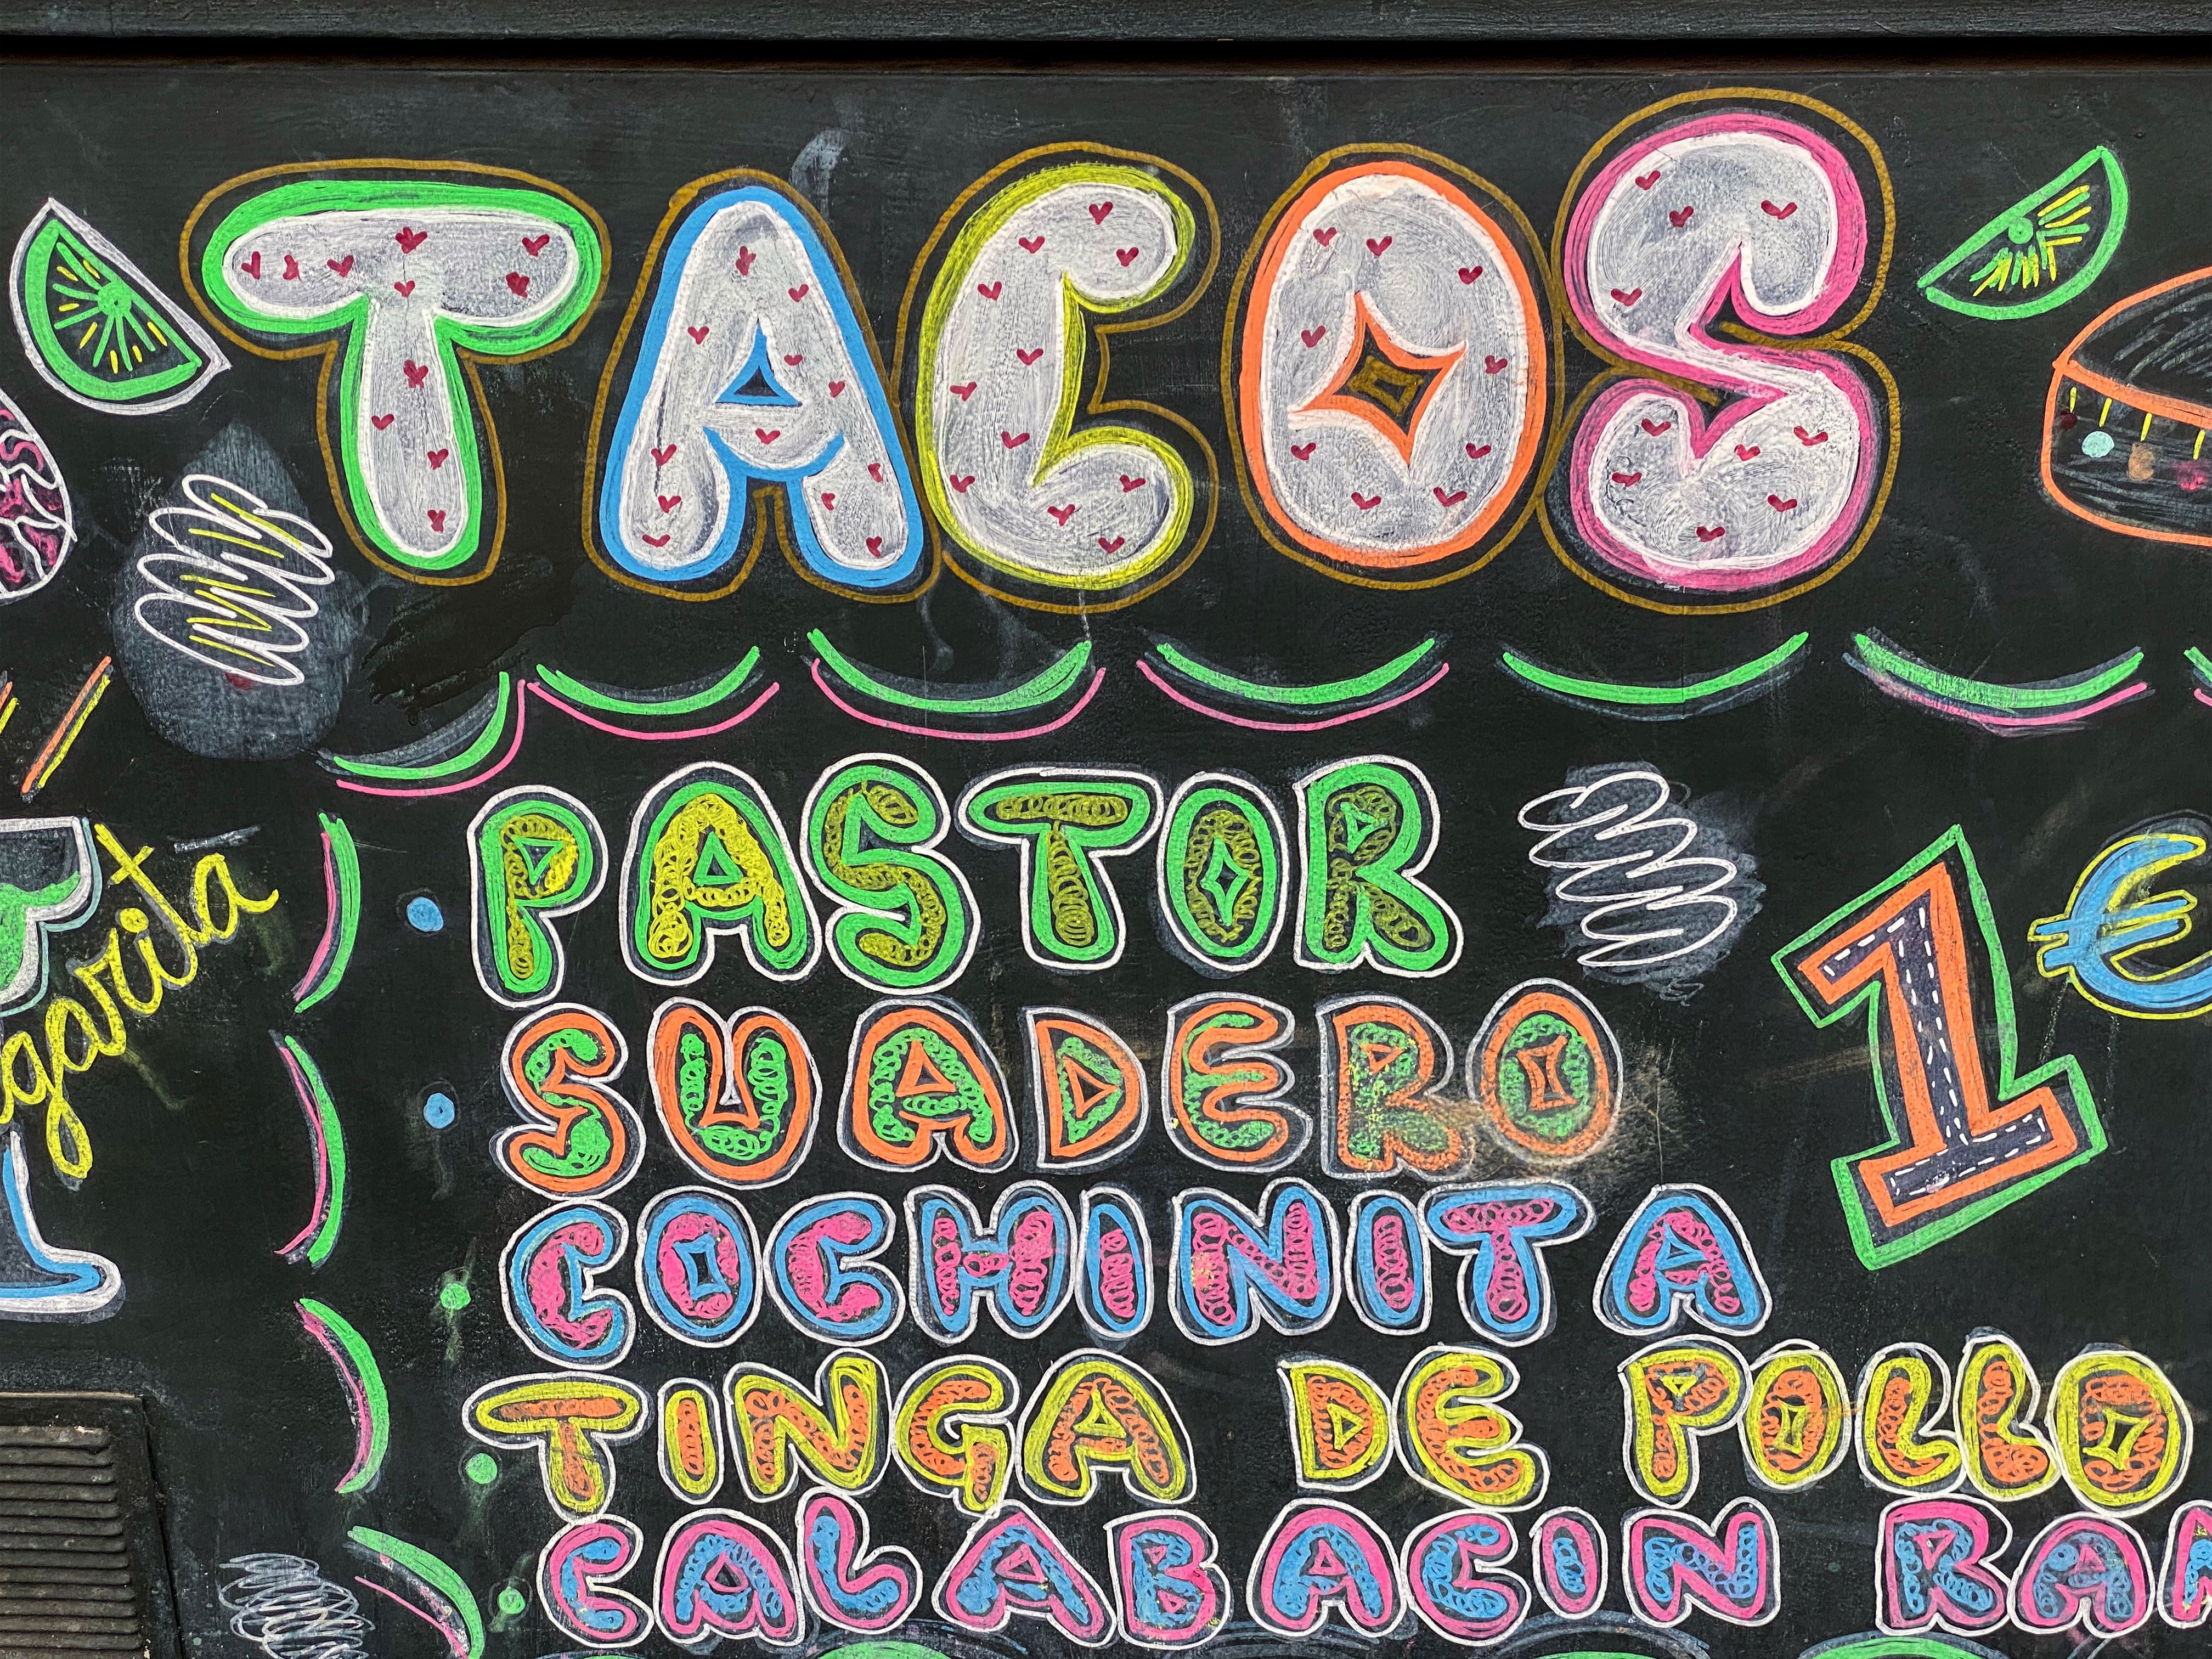 TACOS
PASTOR
1€
garita
SUADERO
COCHINITA
TINGA DE POLLO
CALABACIN